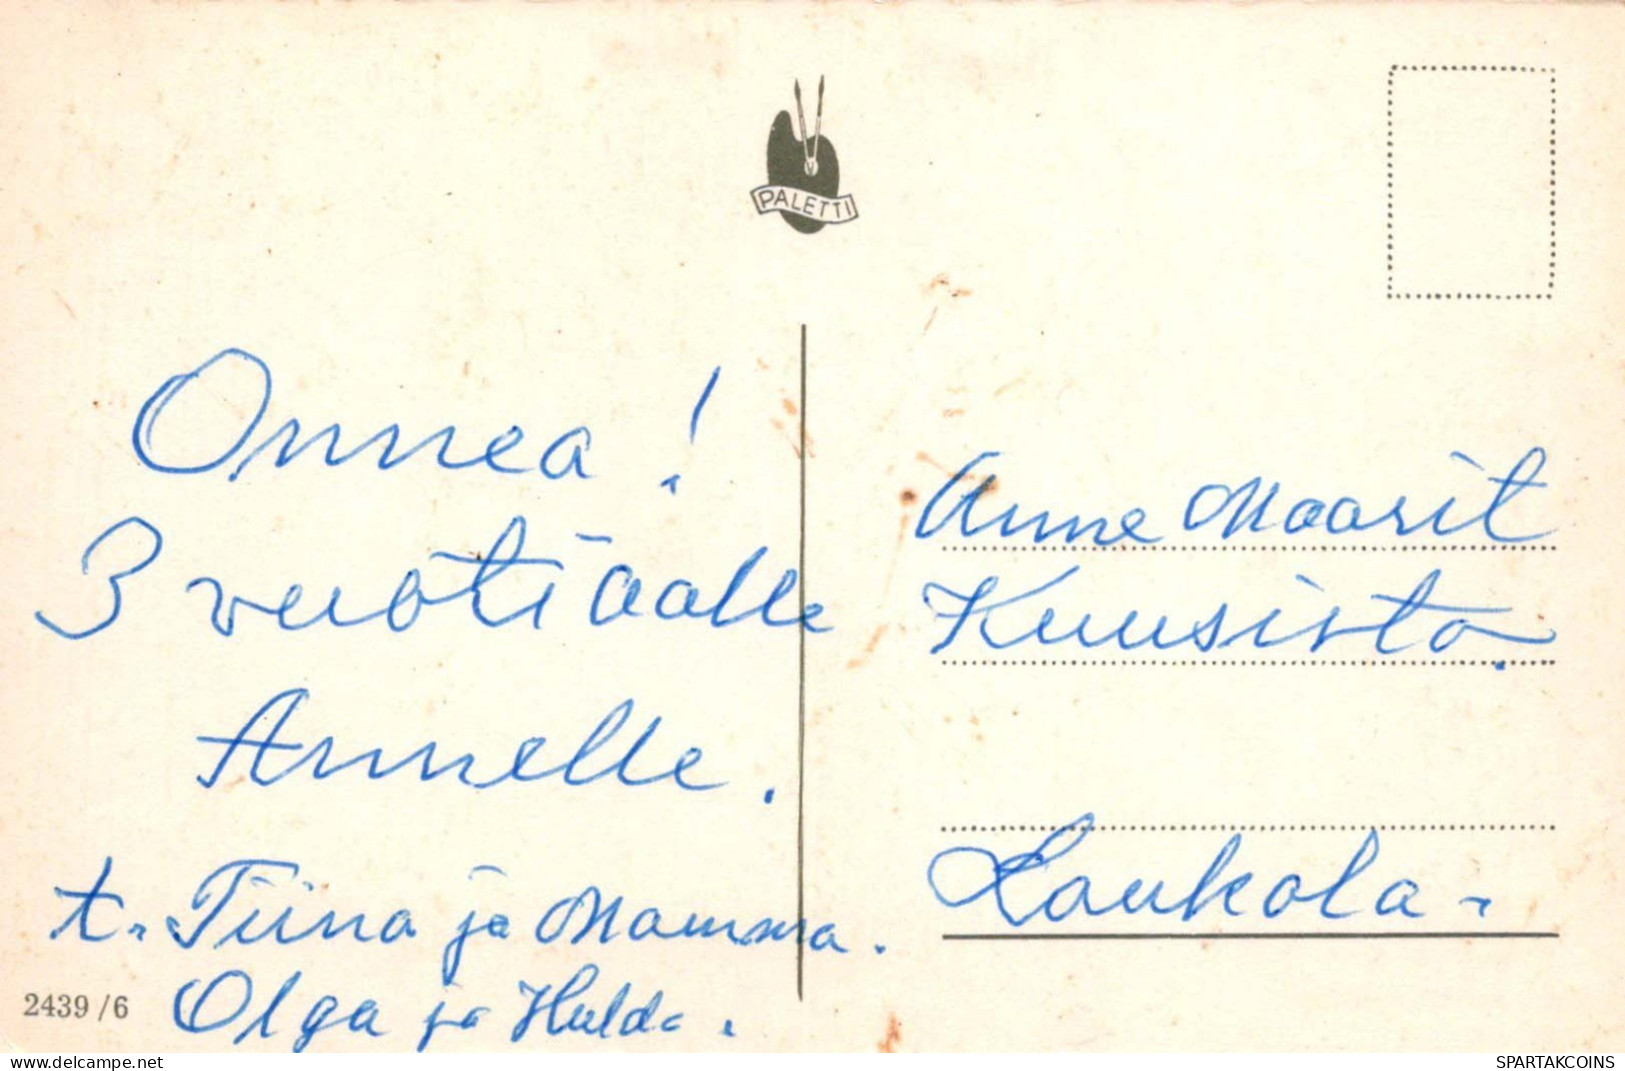 PALETTI
Onnea!
3 vuotiaalle
Annelle.
t. Tiina ja Mamma.
Olga ja Hulda.
Anne Maarit
Kuusisto.
Laukola.
2439/6
www.delcampe.net
SPARTAKCOINS